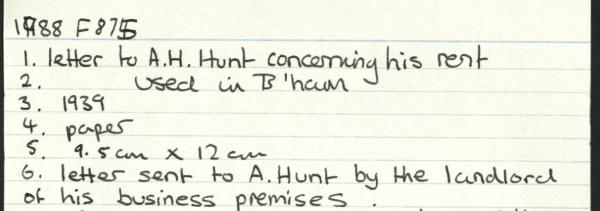 1988 F 875
1. letter to A.H. Hunt concerning his rent
2. used in B'ham
3. 1939
4. paper
5. 9.5 cm x 12 cm
6. letter sent to A. Hunt by the landlord
of his business premises.